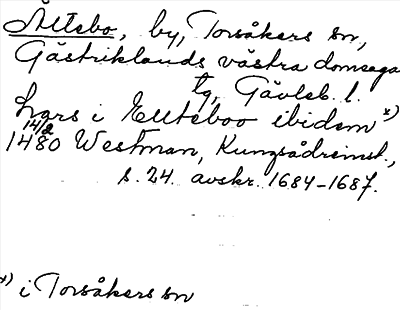 Ältebo, by, Torsåkers sn,
Gästriklands västra domsaga
tg, Gävleb. l.
Lars i Ellteboo ibidem x)
14/2
1480 Westman, Kungsådreinst.,
s. 24. avskr. 1684-1687.
x) i Torsåkers sn